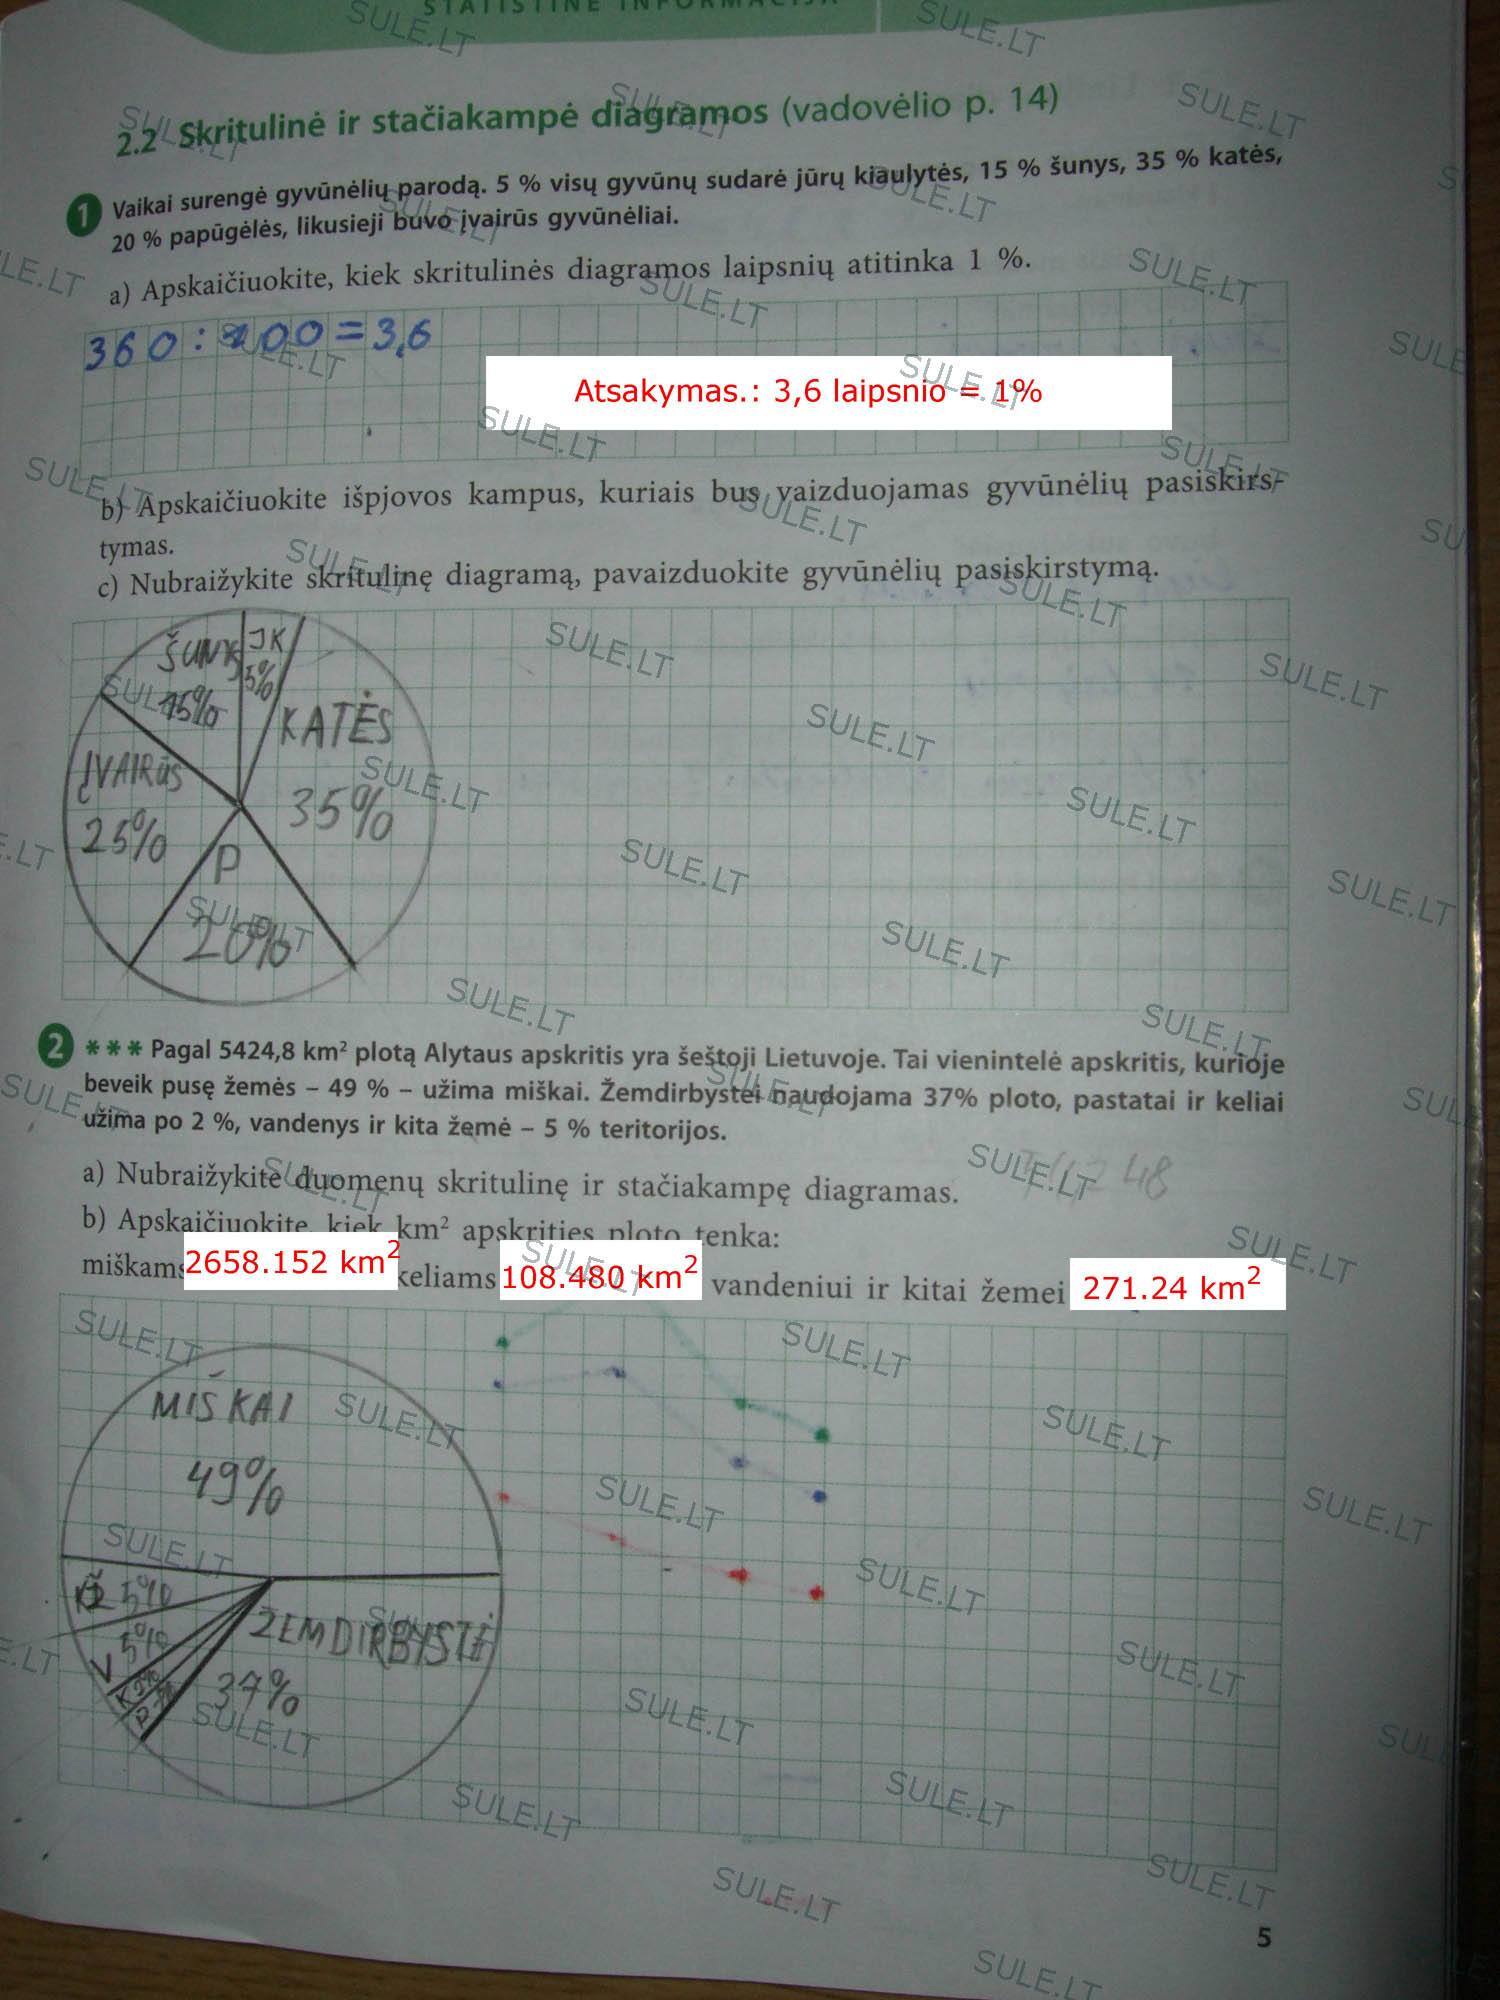 STATISTINĖ INFORMACIJA
2.2 Skritulinė ir stačiakampė diagramos (vadovėlio p. 14)
1 Vaikai surengė gyvūnėlių parodą. 5 % visų gyvūnų sudarė jūrų kiaulytės, 15 % šunys, 35 % katės,
20 % papūgėlės, likusieji buvo įvairūs gyvūnėliai.
a) Apskaičiuokite, kiek skritulinės diagramos laipsnių atitinka 1 %.
360 : 100 = 3,6
Atsakymas.: 3,6 laipsnio = 1%
b) Apskaičiuokite išpjovos kampus, kuriais bus vaizduojamas gyvūnėlių pasiskirs-
tymas.
c) Nubraižykite skritulinę diagramą, pavaizduokite gyvūnėlių pasiskirstymą.
ŠUNYS JK
15% 5%
KATĖS
ĮVAIRŪS
35%
25%
P
20%
2 *** Pagal 5424,8 km² plotą Alytaus apskritis yra šeštoji Lietuvoje. Tai vienintelė apskritis, kurioje
beveik pusę žemės – 49 % – užima miškai. Žemdirbystei naudojama 37% ploto, pastatai ir keliai
užima po 2 %, vandenys ir kita žemė – 5 % teritorijos.
a) Nubraižykite duomenų skritulinę ir stačiakampę diagramas.
b) Apskaičiuokite, kiek km² apskrities ploto tenka:
miškams 2658.152 km² keliams 108.480 km² vandeniui ir kitai žemei 271.24 km²
MIŠKAI
49%
5%
ŽEMDIRBYSTĖ
5%
V
37%
K
P
5
SULE.LT